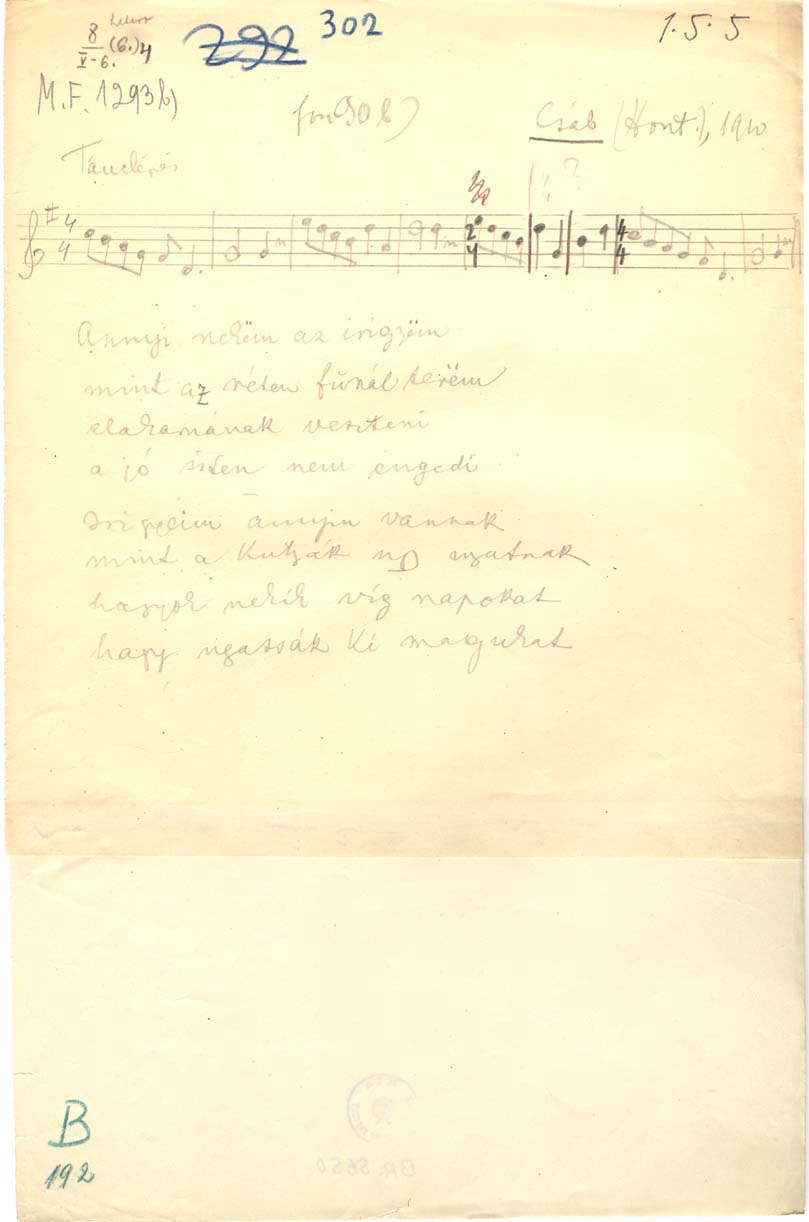 8 (6.) 4
V-6.
292 302
1.5.5
M.F. 1293b)
fon 90b)
Csáb (Hont.), 1910
Tánclépés
4 4
2 4
4 4 ?
4 4
Annyi nekëm az irigyëm
mint az réten fűnál terëm
elakarnának veszteni
a jó isten nem engedi
Irigyeim ānnyin vannak
mint a Kutyák ugatnak
hagyok nekik víg napokat
hagy ugassák Ki magukat
B
192
BR. 5650